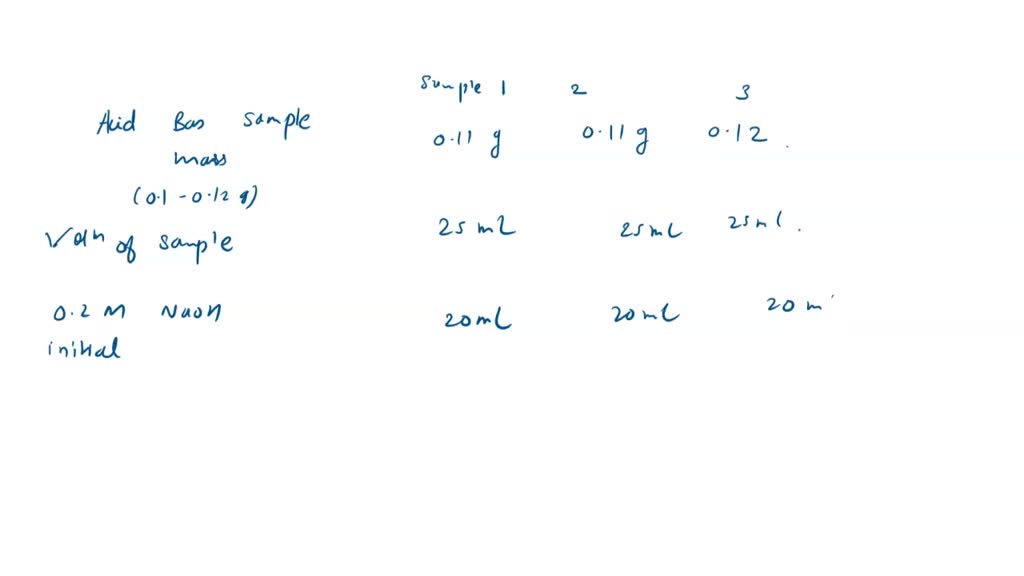 Sample 1 2 3
Acid Bas sample 0.11 g 0.11 g 0.12 .
mass
(0.1 - 0.12 g)
of sample 25 mL 25 mL 25 mL .
0.2 M NaOH 20 mL 20 mL 20 m
initial